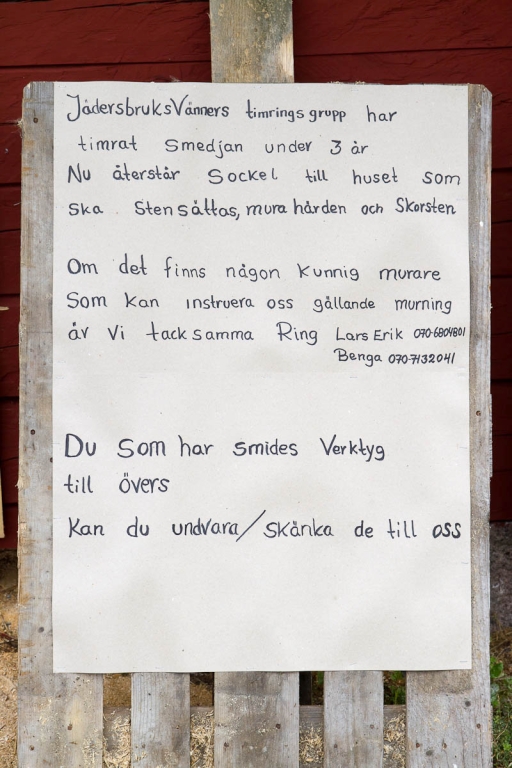 JädersbruksVänners timrings grupp har
timrat smedjan under 3 år
Nu återstår Sockel till huset som
ska Stensättas, mura härden och Skorsten
Om det finns någon kunnig murare
Som kan instruera oss gällande murning
är vi tacksamma Ring Lars Erik 070-6804801
Benga 070-7132041
Du som har smides Verktyg
till övers
Kan du undvara/skänka de till oss